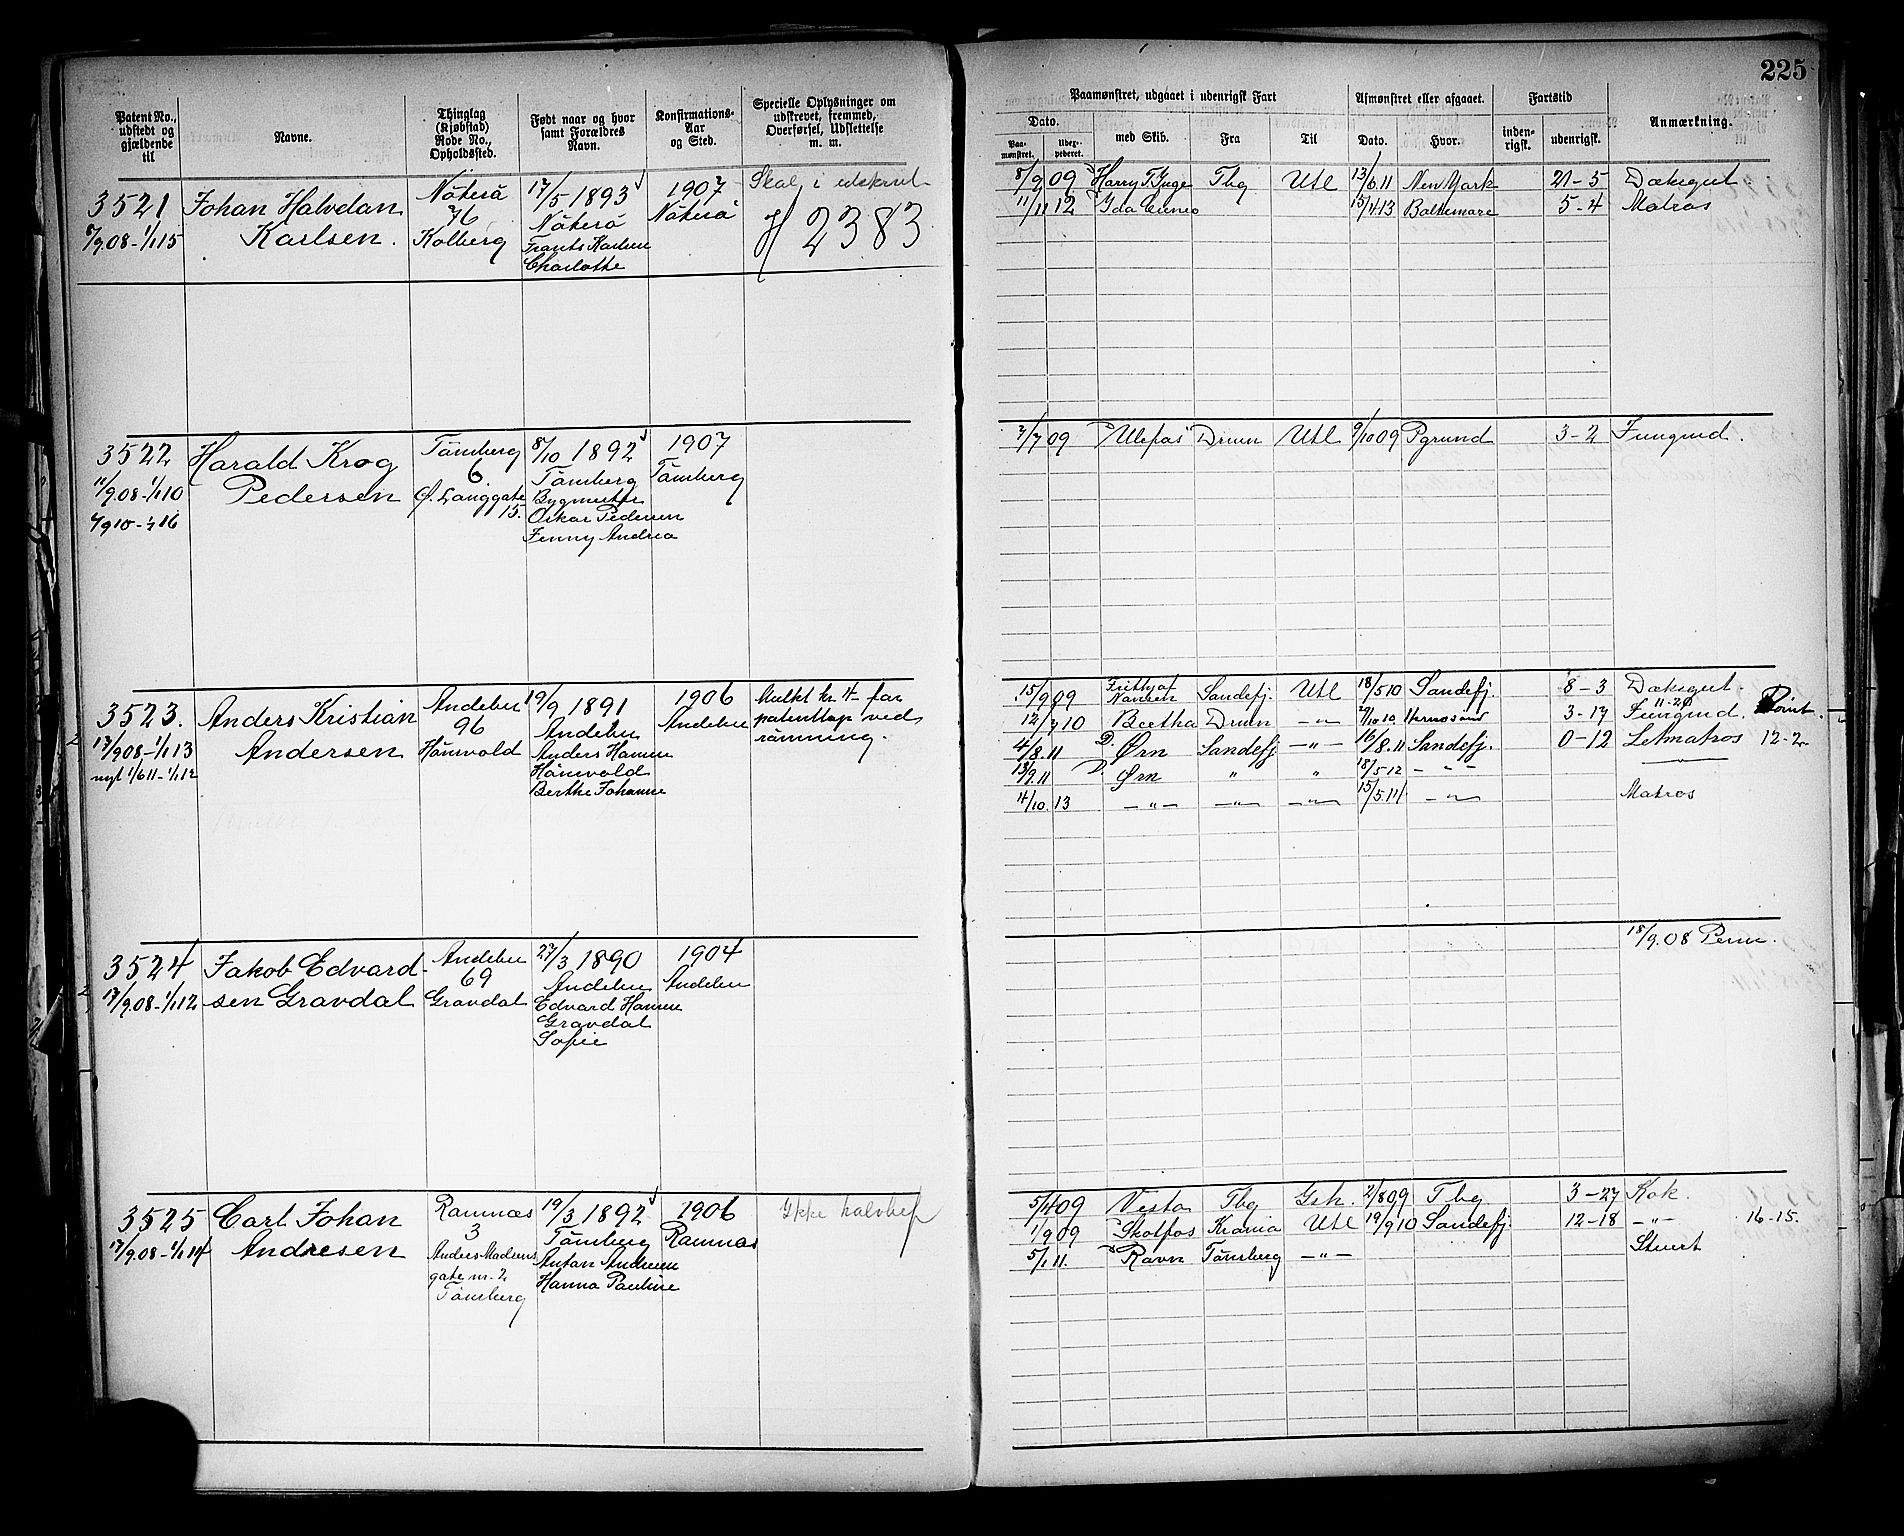 225
Patent No., udstedt og gjældende til
Navne.
Thinglag (Kjøbstad) Rode No., Opholdssted.
Født naar og hvor samt Forældres Navn.
Konfirmations-Aar og Sted.
Specielle Oplysninger om udskrevet, fremmed, Overførsel, Udslettelse m. m.
Paamønstret, udgaaet i udenrigsk Fart
Afmønstret eller afgaaet.
Fartstid
Anmærkning.
Dato.
med Skib.
Fra
Til
Dato.
Hvor.
inden-rigsk.
udenrigsk.
Paa-mønstret.
3521
Johan Halvdan
Karlsen.
Nøterö
76
Kolberg
17/5 1893
Nøterö
Frants Karlsen
Charlotte
1907
Nøterö
Skal i udskrivt
2383
8/9 09 Harry T Inge Tbg Utl 13/6 11 New York 21-5 Dæksgut
11/11 12 Ida Cuneo 15/4 13 Baltimore 5-4 Matros
3522
11/9 08-1/1 10
Harald Krog
Pedersen
Tönsberg
6.
Ø. Langgate
15.
8/10 1892
Tönsberg
Bygmester
Oskar Pedersen
Jenny Andrea
1907
Tönsberg
7/7 09 "Ulefos" Drmn Utl 9/10 09 Pgrund 3-2 Jungmd.
3523.
17/9 08-1/1 13
nyt 1/6 11-1/1 12
Anders Kristian
Andersen
Andebu
96
Hånvold
19/9 1891
Andebu
Anders Hansen
Hånvold
Berthe Johanne
1906
Andebu
Mulkt kr. 4- for
patenttap ved
römning.
15/9 09 Fritthjof Nansen Sandefj. Utl 18/5 10 Sandefj. 8-3 Dæksgut
Bertha Drmn -"- Hernosand 3-17 Jungmd. 11-20
4/8 11 D. Ørn Sandefj -"- 16/8 11 Sandefj. 0-12 Letmatros
13/9 11 D. Ørn " " 18/5 12 -"-
4/10 13 -"- -"- -"- -"- Matros
3524
17/9 08-1/1 12
Jakob Edvard-
sen Gravdal
Andebu
69
Gravdal
27/3 1890
Andebu
Edvard Hansen
Gravdal
Sofie
1904
Andebu
18/9 08 Perm.
3525
17/9 08-1/1 14
Carl Johan
Andresen
Ramnæs
3
Anders Madsens
gate nr. 2
Tönsberg
19/3 1892
Tönsberg
Anton Andresen
Hanna Pauline
1906
Ramnæs
Ikke halvbef
5/4 09 Vesta Tbg Gsk. 2/8 09 Tbg 3-27 Kok.
1/9 09 Skotfos Krania Utl 19/9 10 Sandefj. 12-18 -"- 16-15.
5/1 11. Ravn Tönsberg -"- Stuert